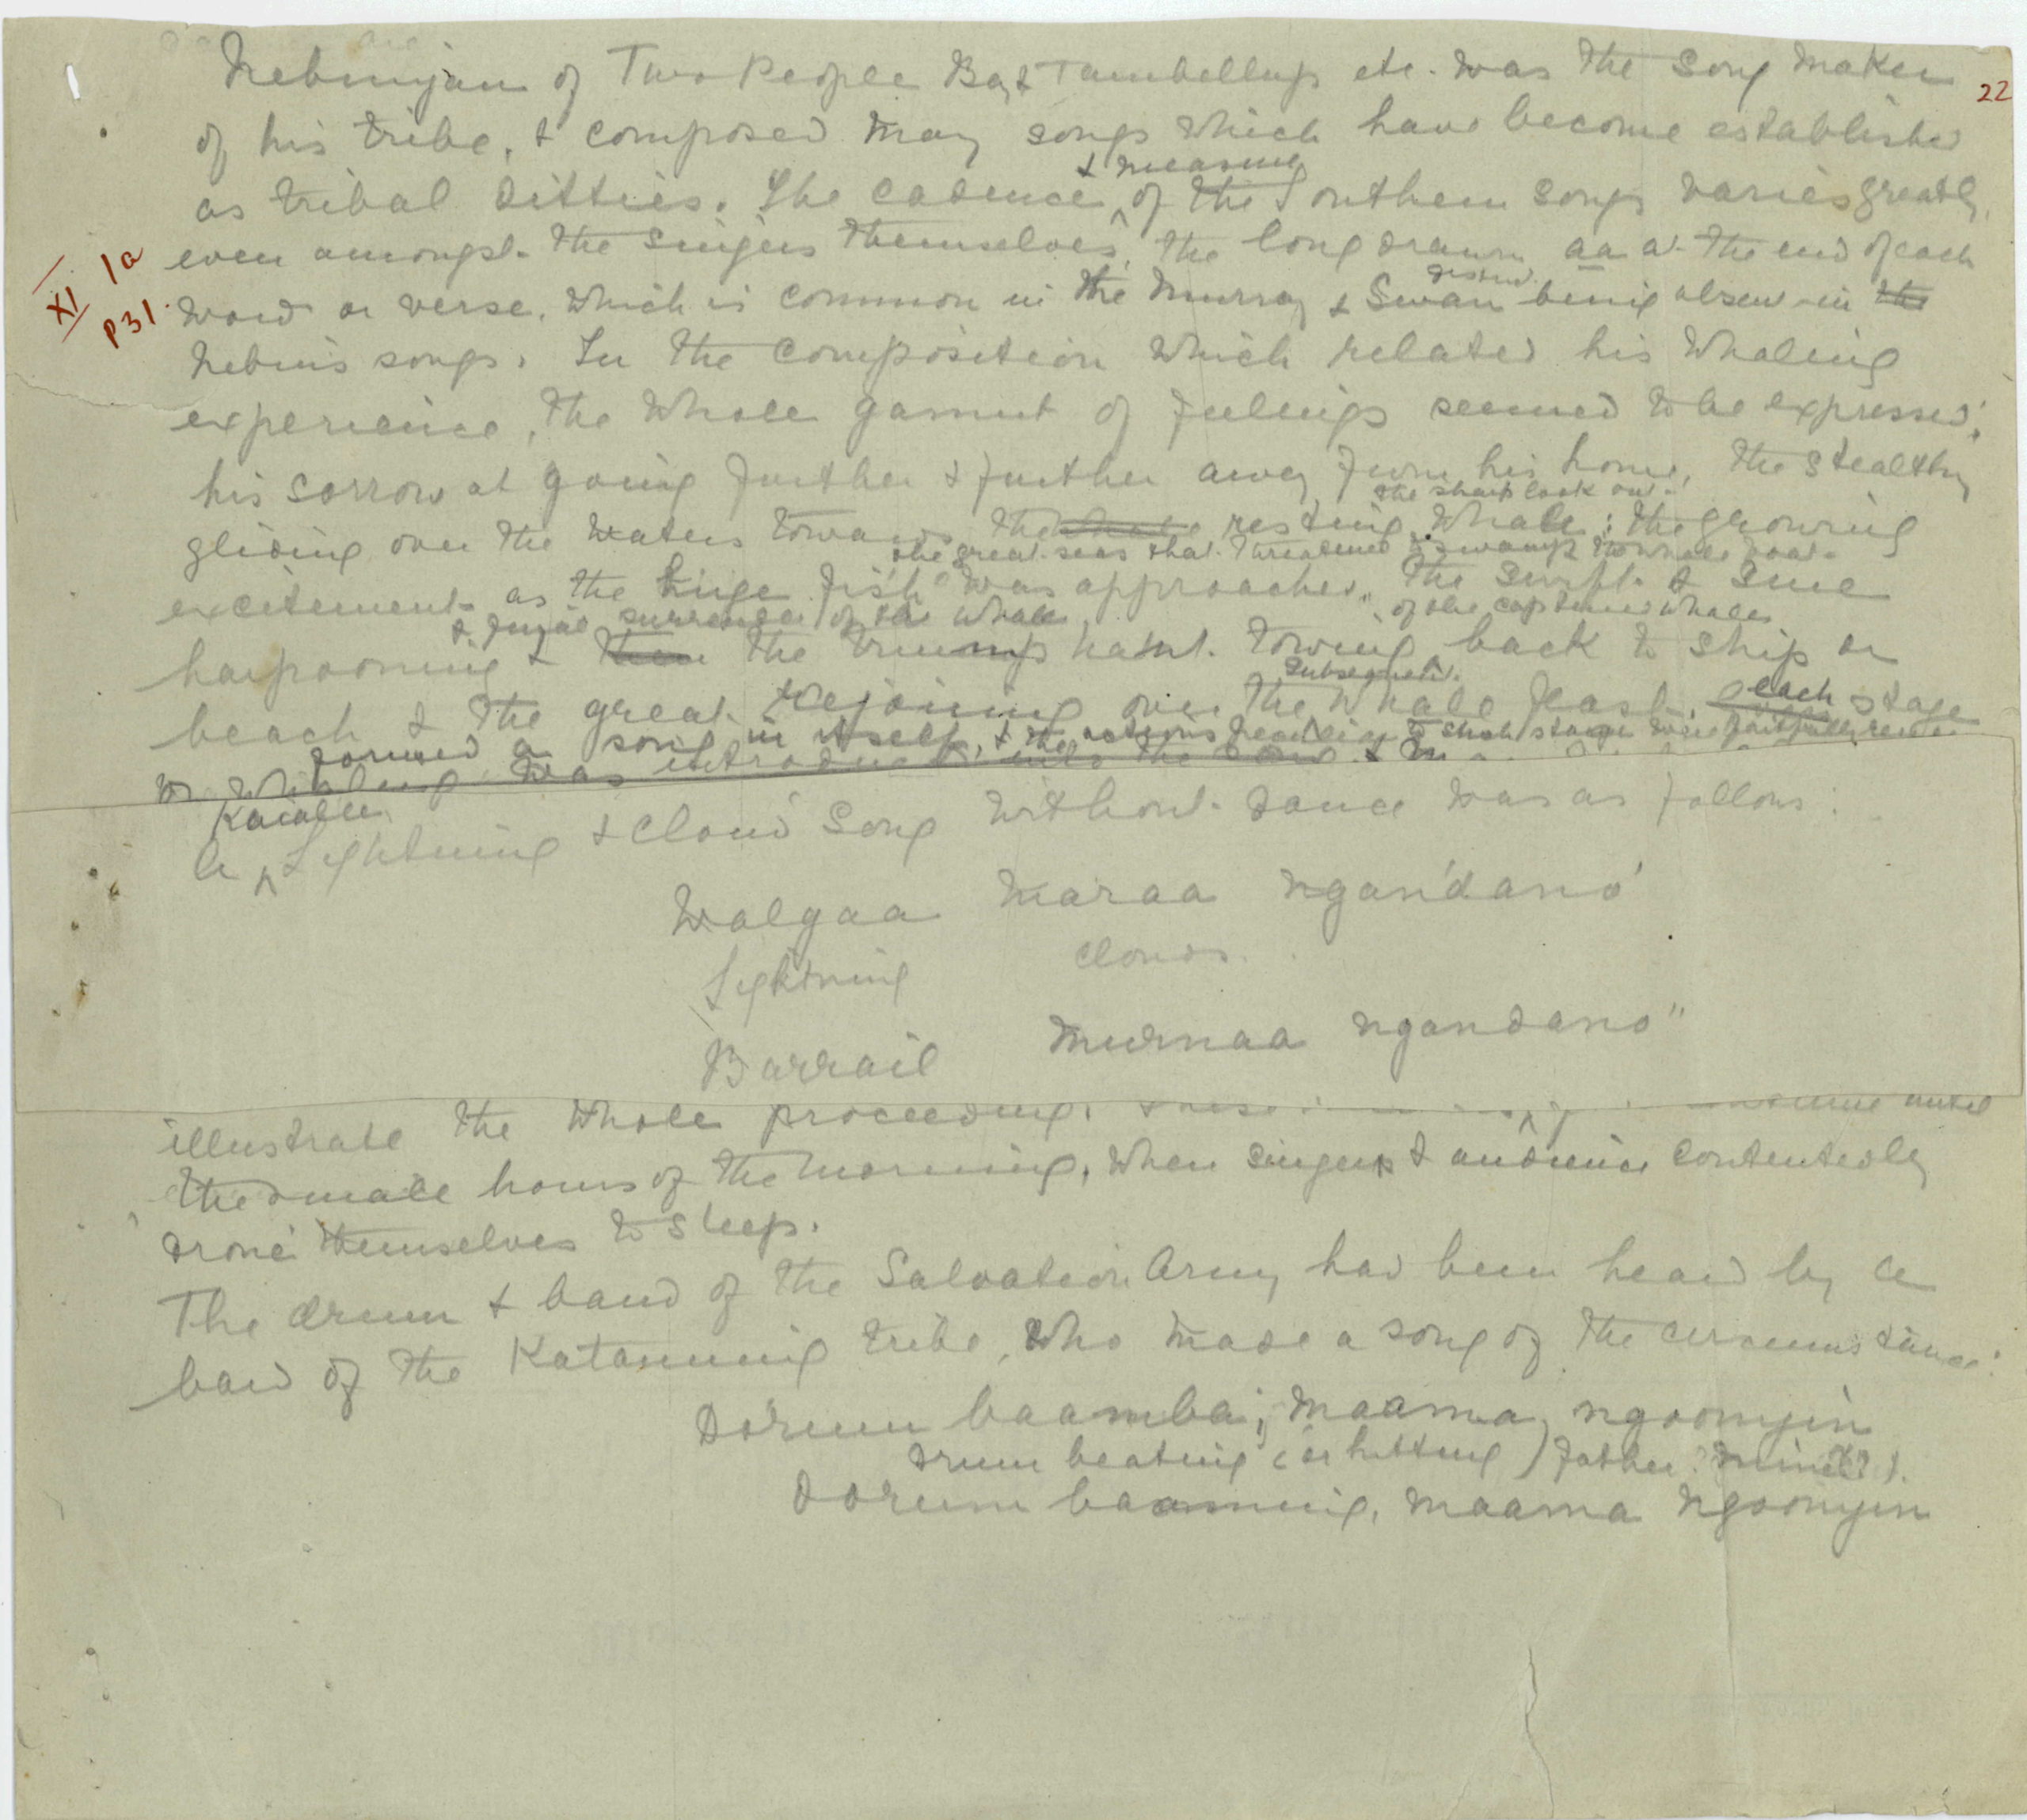 22
Nebinyan of Two People Bay & Tambellup etc. was the song maker
of his tribe, & composed many songs which have become established
as tribal ditties. The cadence & measure of the Southern songs varies greatly,
even amongst the singers themselves, the long drawn aa at the end of each
XI 1a
P31.
word or verse, which is common in the Murray & Swan district being absent in the
Nebin's songs. In the composition which related his whaling
experience, the whole gamut of feelings seemed to be expressed;
his sorrow at going further & further away from his home, the stealthy
the sharp look out
gliding over the waters towards the whale resting whale; the growing
the great seas that threatened to swamp the whale boat
excitement as the huge fish was approached, the swift & sure
& final surrender of the whale
of the captured whales
harpooning & then the triumphant towing back to ship or
subsequent
beach & the great rejoicing over the whale feast, each stage
formed a song in itself, & the actions peculiar to each stage were faithfully
of whaling was introduced into the
Kaialee
A Lightning & Cloud Song without dance was as follows:
Walgaa maraa ngan'dano'
Lightning clouds.
Barrail murnaa ngandano"
illustrate the whole proceeding. until
the small hours of the morning, when singers & audience contentedly
drone themselves to sleep.
The drum & band of the Salvation Army had been heard by a
bard of the Katanning tribe, who made a song of the circumstance:
Dorum baamba; maama, ngoonyin
drum beating (or hitting) father mine(?).
Dorum baaming, maama ngoonyin